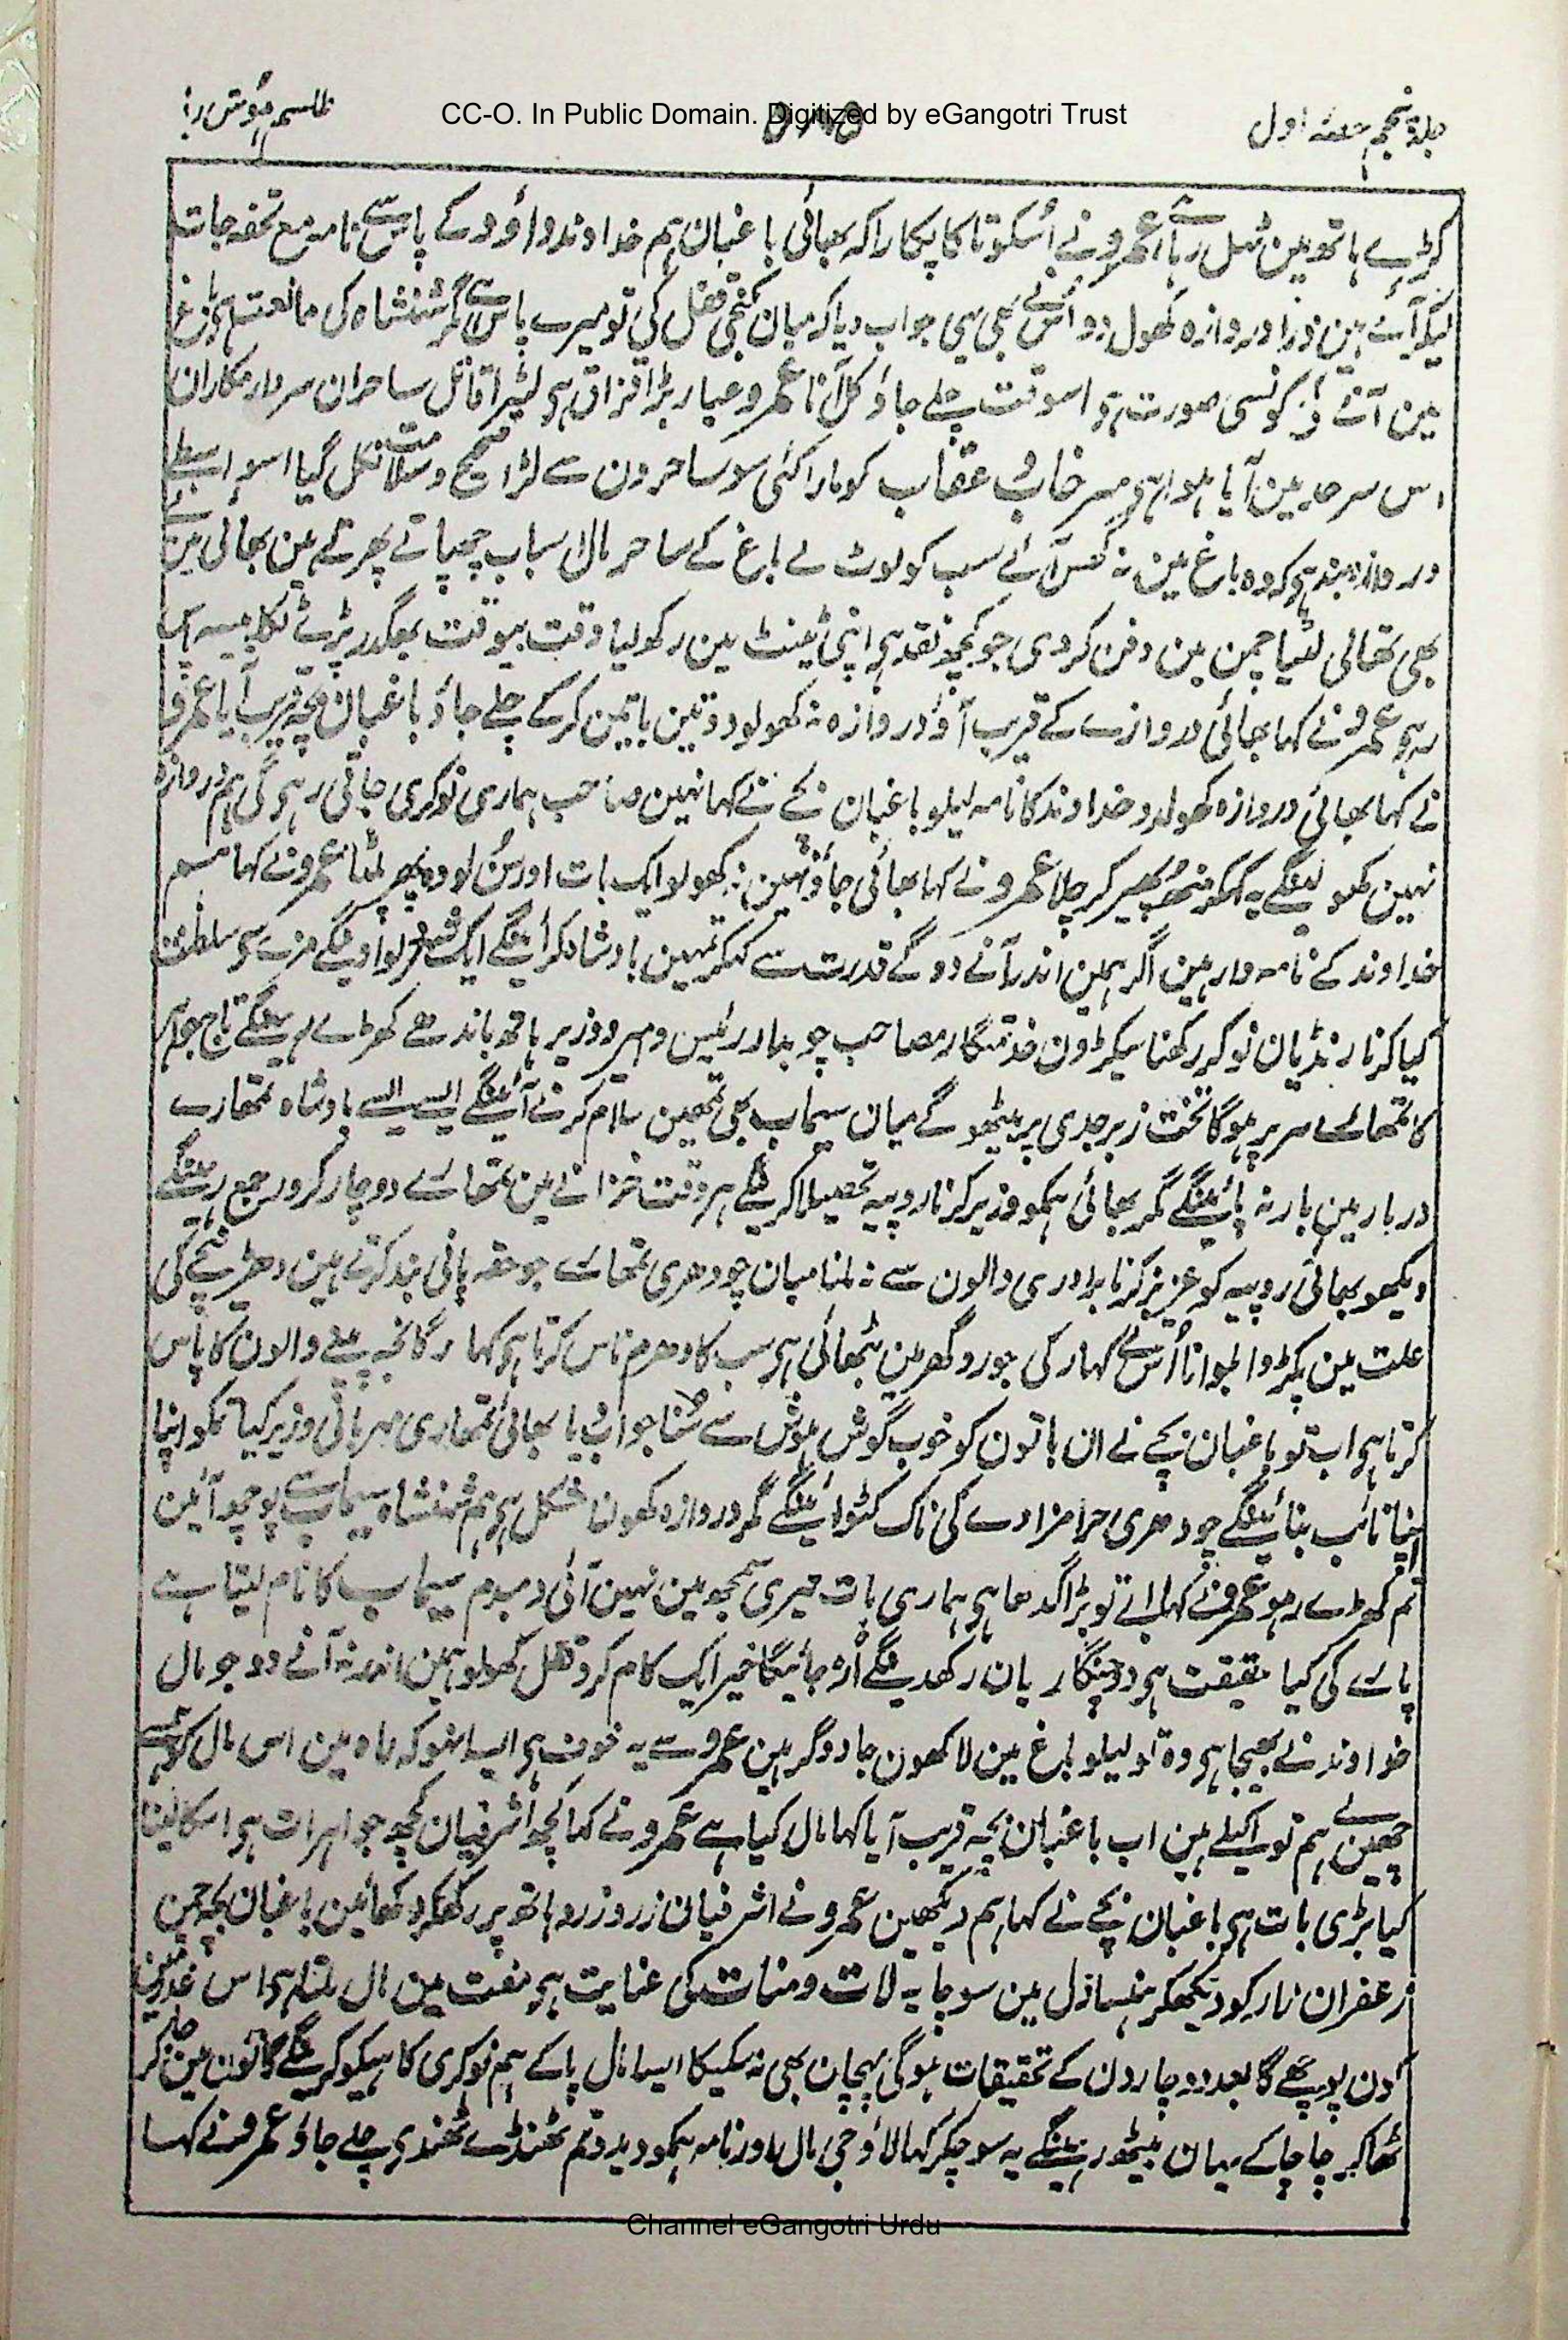 CC-O. In Public Domain. Digitized by eGangotri Trust
جلد پنجم حصہ اول
طلسم ہوش ربا
کڑے ہاتھ مین ٹہل رہا ہے عمرو نے اُسکو تاکا پکارا کہ بھائی باغبان ہم خداوند داؤد کے پاس سے نامہ مع تحفہ جات
لیکر آئے ہین ذرا دروازہ کھول دو اُسنے بھی یہی جواب دیا کہ میان کنجی قفل کی تو میرے پاس ہے مگر شہنشاہ کی ممانعت ہی باغ
مین آنے کی کونسی صورت ہو اسوقت چلے جاؤ کل آنا عمرو عیار بڑا قزاق ہی لٹیرا قاتل ساحران سردار مکاران
اس سرحد مین آیا ہوا ہی سرخاب عقاب کو مارا کئی سو ساحرون سے لڑا صحیح و سلامت نکل گیا اسواسطے
دروازہ بند ہی کہ وہ باغ مین نہ گھس آئے سب کو لوٹ لے باغ کے ساحر مال اسباب چھپاتے پھرتے ہین بھائی مین نے
بھی تھالی لٹیا چمن مین دفن کردی جو کچھ نقد ہی اپنی ٹینٹ مین رکھ لیا وقت بیوقت بھگدر پڑے تکا پیسہ پاس
رہے عمرو نے کہا بھائی دروازے کے قریب آؤ دروازہ نہ کھولو دو تین باتین کرکے چلے جاؤ باغبان بچہ قریب آیا عمرو
نے کہا بھائی دروازہ کھولدو خداوند کا نامہ لیلو باغبان بچے نے کہا نہین صاحب ہماری نوکری جاتی رہی گی ہم دروازہ
نہین کھولینگے یہ کہکر منھ پھیر کر چلا عمرو نے کہا بھائی جاؤ نہین نہ کھولو ایک بات اور سُن لو وہ پھر پلٹا عمرو نے کہا ہم
خداوند کے نامہ دار ہین اگر ہمین اندر آنے دو گے قدرت سے کہکر تمہین بادشاہ کرائینگے ایک شہر دلوا دینگے مزے سے سلطنت
کیا کرنا رنڈیان نوکر رکھنا سیکڑون خدمتگار مصاحب چوبدار رئیس و امیر و وزیر ہاتھ باندھے کھڑے رہینگے تاج جواہر
کا تمھارے سر پر ہوگا تخت زبرجدی پر بیٹھو گے میان سیماب بھی تمھین سلام کرنے آئینگے ایسے ایسے بادشاہ تمھارے
دربار مین بار نہ پائینگے مگر بھائی ہمکو وزیر کرنا روپیہ تحصیلا کرینگے ہر وقت خزانے مین تمھارے دوچار کرور جمع رہینگے
دیکھو بھائی روپیہ کو عزیز کرنا برادری والون سے نہ ملنا میان چودھری تمھارے جو حقہ پانی بند کرتے ہین دھڑیچے کی
علت مین پکڑوا بلوانا اُس نے کہار کی جورو گھر مین بٹھائی ہی سب کا دھرم ناس کرتا ہی کہا رگانجہ پینے والون کا پاس
کرتا ہی اب تو باغبان بچے نے ان باتون کو خوب گوش ہوش سے سُنا جواب دیا بھائی تمھاری مہربانی وزیر کیا تمکو اپنا
اپنا نائب بنائینگے چودھری حرامزادے کی ناک کٹوائینگے مگر دروازہ کھولنا مشکل ہی ہم شہنشاہ سیماب سے پوچھ آئین
تم کھڑے رہو عمرو نے کہا ابے تو بڑا گدھا ہی ہماری بات تیری سمجھ مین نہین آتی دمبدم سیماب کا نام لیتا ہے
پارے کی کیا حقیقت ہی دو چنگاریان رکھدینگے اُڑ جائیگا خیر ایک کام کرو قفل کھولو ہمین اندر نہ آنے دو جو مال
خداوند نے بھیجا ہی وہ تو لیلو باغ مین لاکھون جادوگر ہین عمرو سے یہ خوف ہی ایسا نہو کہ راہ مین اس مال کو ہم سے
چھین لے ہم تو اکیلے ہین اب باغبان بچہ قریب آیا کہا مال کیا ہے عمرو نے کہا کچھ اشرفیان کچھ جواہرات ہی اسکا لینا
کیا بڑی بات ہی باغبان بچے نے کہا ہم دیکھین عمرو نے اشرفیان زرد زرد ہاتھ پر رکھکر دکھائین باغبان بچہ چمن
زعفران زار کو دیکھکر ہنسا دل مین سوچا یہ لات و منات کی عنایت ہی مفت مین مال ملتا ہی اس غدر مین
کون پوچھے گا بعد دو چار دن کے تحقیقات ہوگی پہچان بھی نہ سکیگا ایسا مال پاکے ہم نوکری کاہیکو کرینگے گانون مین جاکر
ٹھاکر چاچا کے یہان بیٹھ رہینگے یہ سوچکر کہا لاؤ جی مال اور نامہ ہمکو دیدو تم ٹھنڈے ٹھنڈے چلے جاؤ عمرو نے کہا
Channel eGangotri Urdu